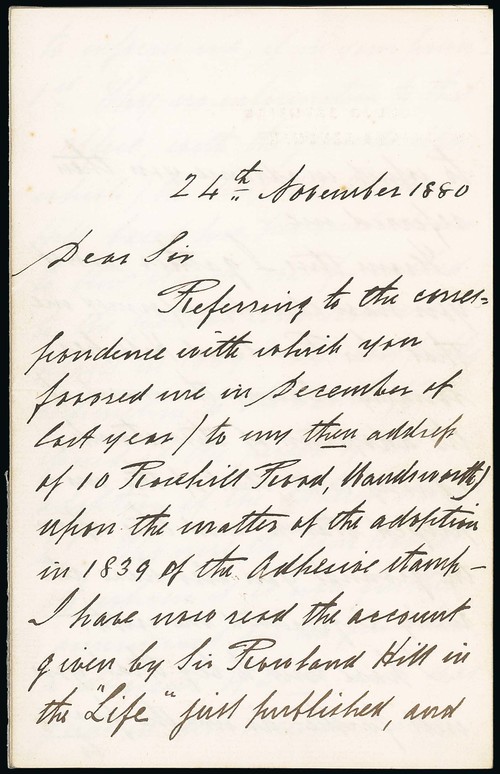 24th November 1880
Dear Sir
Referring to the corres=
pondence with which you
favored me in December of
last year (to my then address
of 10 Rosehill Road, Wandsworth)
upon the matter of the adoption
in 1839 of the Adhesive stamp -
I have now read the account
given by Sir Rowland Hill in
the "Life" just published, and